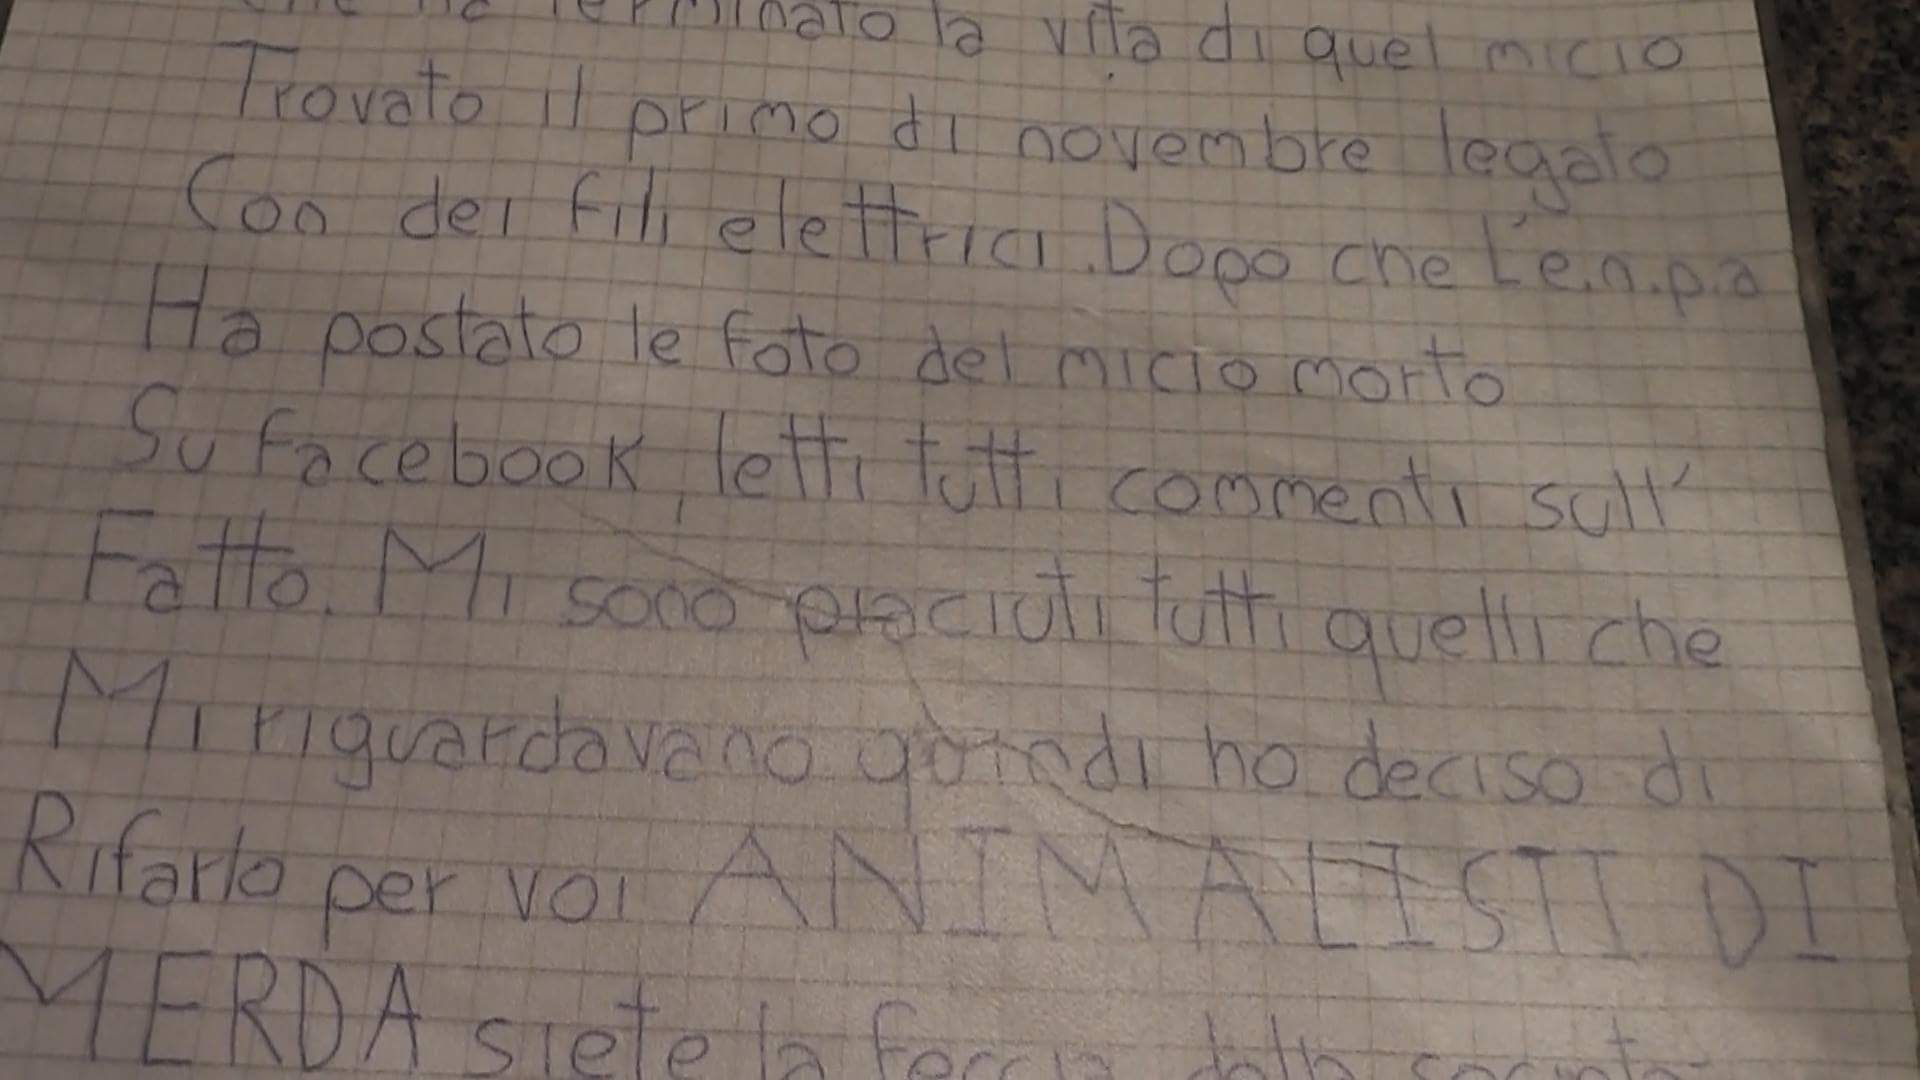 che ha terminato la vita di quel micio
Trovato il primo di novembre legato
Con dei fili elettrici. Dopo che L'e.n.p.a
Ha postato le foto del micio morto
Su facebook, letti tutti commenti sull'
Fatto. Mi sono piaciuti tutti quelli che
Mi riguardavano quindi ho deciso di
Rifarlo per voi ANIMALISTI DI
MERDA siete la feccia della società